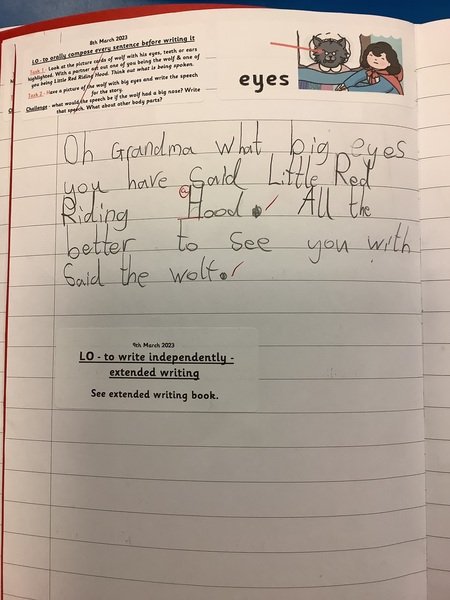 8th March 2023
LO - to orally compose every sentence before writing it
Task 1 - Look at the picture cards of wolf with his eyes, teeth or ears
highlighted. With a partner act out one of you being the wolf & one of
you being Little Red Riding Hood. Think out what is being spoken.
Task 2 - Have a picture of the wolf with big eyes and write the speech
for the story.
Challenge - what would the speech be if the wolf had a big nose? Write
that speech. What about other body parts?
eyes
Oh Grandma what big eyes
you have Said Little Red
Riding Hood. All the
better to See you with
Said the wolf.
9th March 2023
LO - to write independently -
extended writing
See extended writing book.